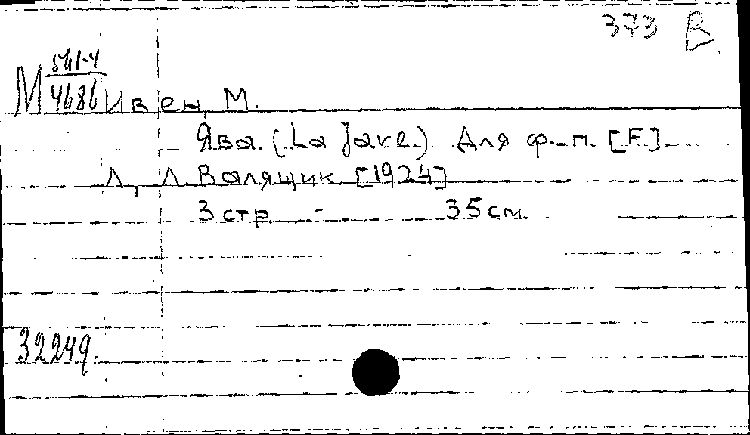 373 В
М 541-4
4686
Ивен, М.
Ява. (La Jave.) Для ф.-п. [F.]
Л., Л. Валящик [1924]
3 стр. - 35 см.
32249.